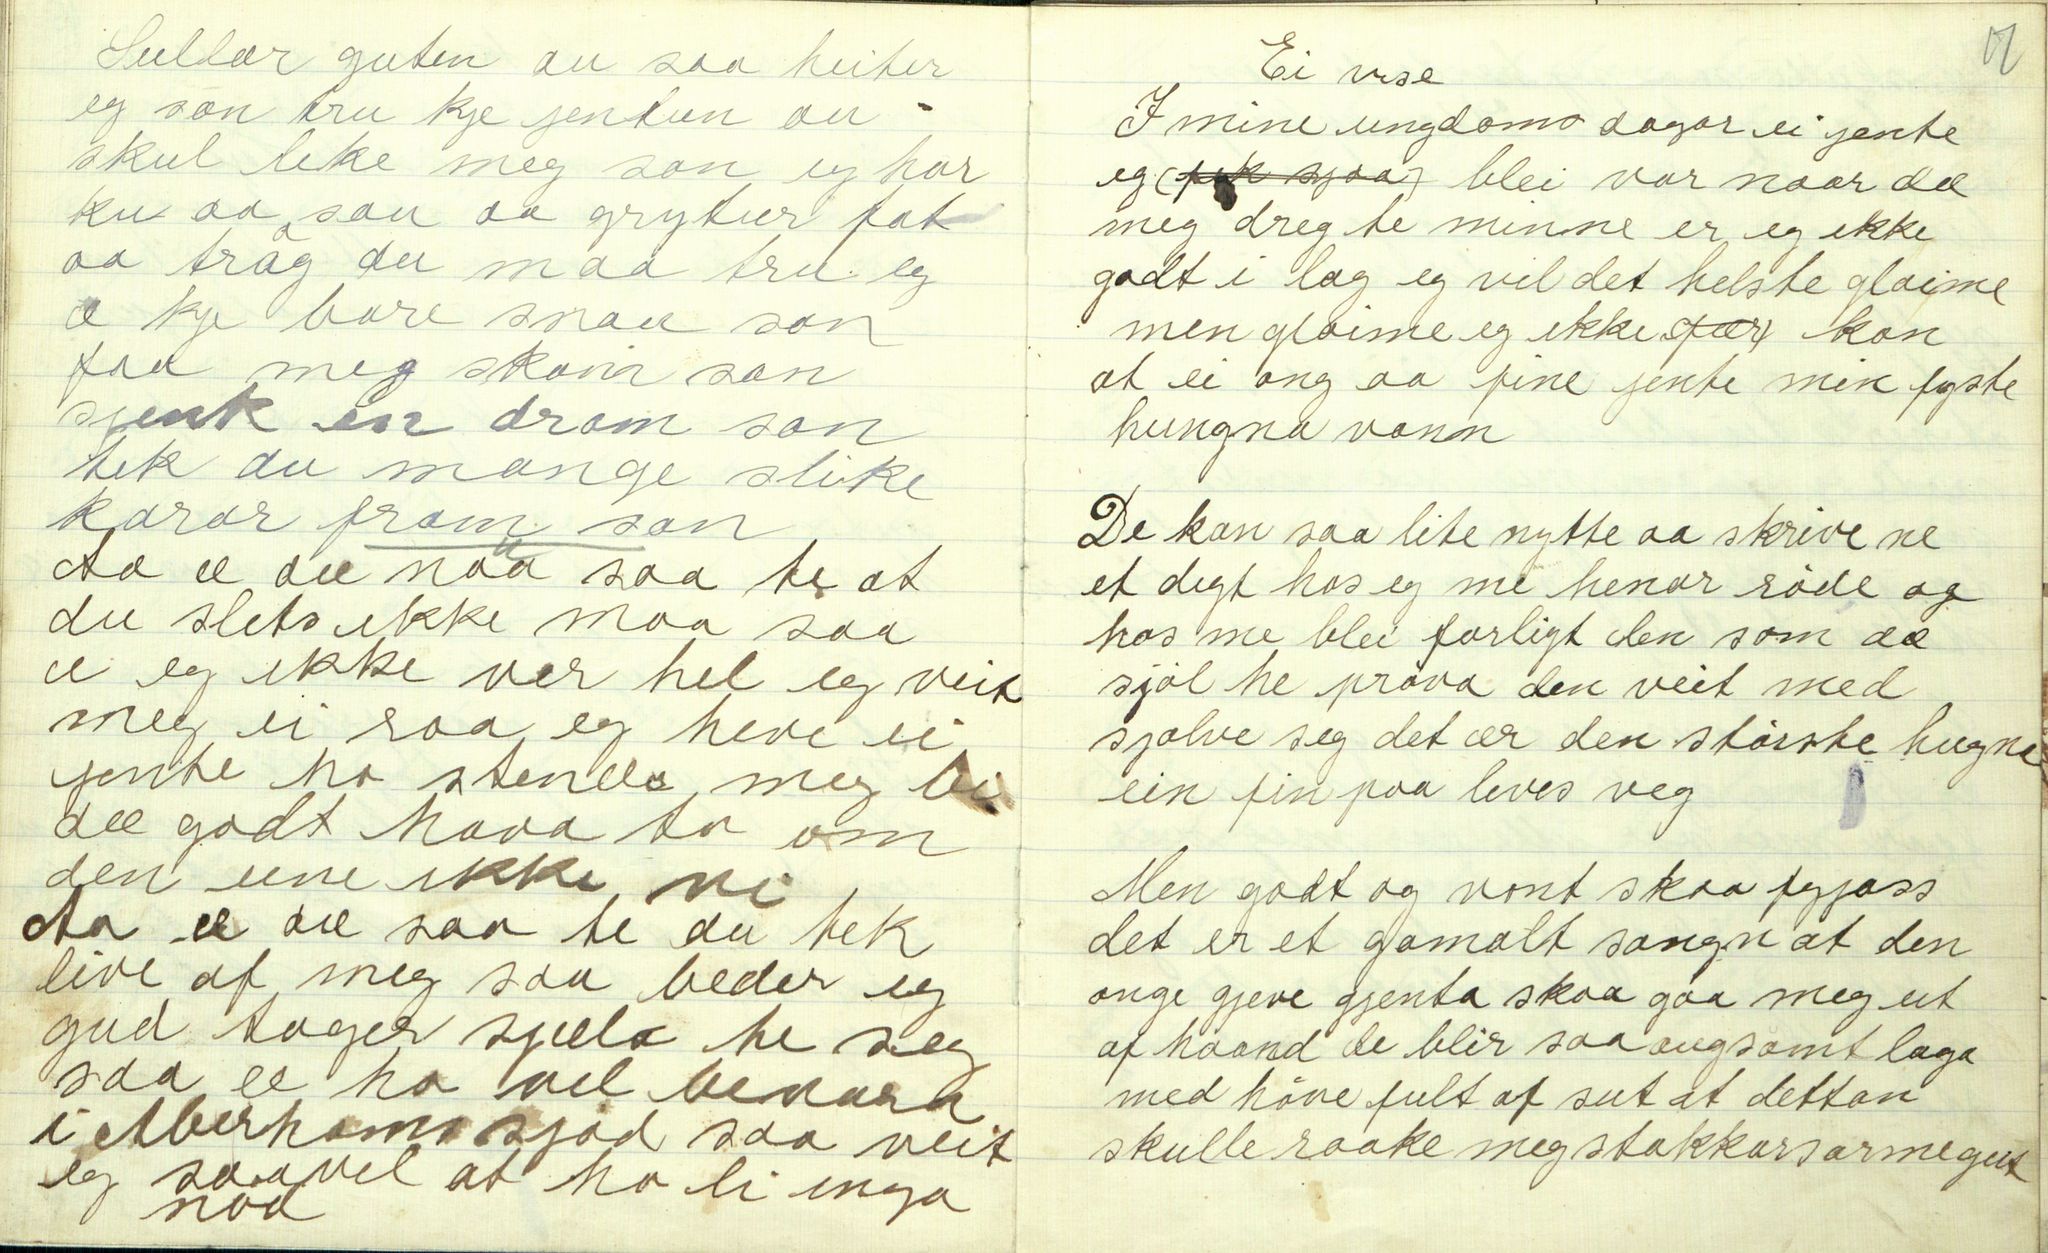 Sullar guten au saa heiter
eg san tru kje jentun au -
skul like meg san eg har
ku aa sau aa grytur fat
aa tråg du maa tru eg
æ kje bare snau san
faa meg skam san
sjenk en dram san
tek du mange slike
karar fram san
Aa æ dæ naa saa te at
du slets ikke maa saa
æ eg ikke vær hel eg veit
meg ei raa eg heve ei
jente ho stende meg bi
dæ godt hava to om
den eine ikke vi
Aa æ dæ saa te du tek
live af meg saa beder eg
gud tager sjæla te seg
saa æ ho vel bevara
i Aberhams sjød saa veit
eg saavel at ho li inga
nøa
Ei vise
I mine ungdoms dagar ei jente
eg (fek sjaa) blei var naar dæ
meg dreg te minne er eg ikke
godt i lag eg vil det helste gløime
men gløime eg ikke kan
at ei ong aa fine jente min fyste
hungna vann
De kan saa lite nytte aa skrive ne
et digt hos eg me henar røde og
hos me blei farligt den som dæ
sjøl he prøva den veit med
sjølve seg det ær den største hugne
ein fin paa leves veg
Men godt og vont skaa fyjass
det er et gamalt sangn at den
onge gjeve gjenta skaa gaa meg ut
af haand de blir saa augsamt laga
med høve fult af sut at dettan
skulle raake meg stakkars arme gut